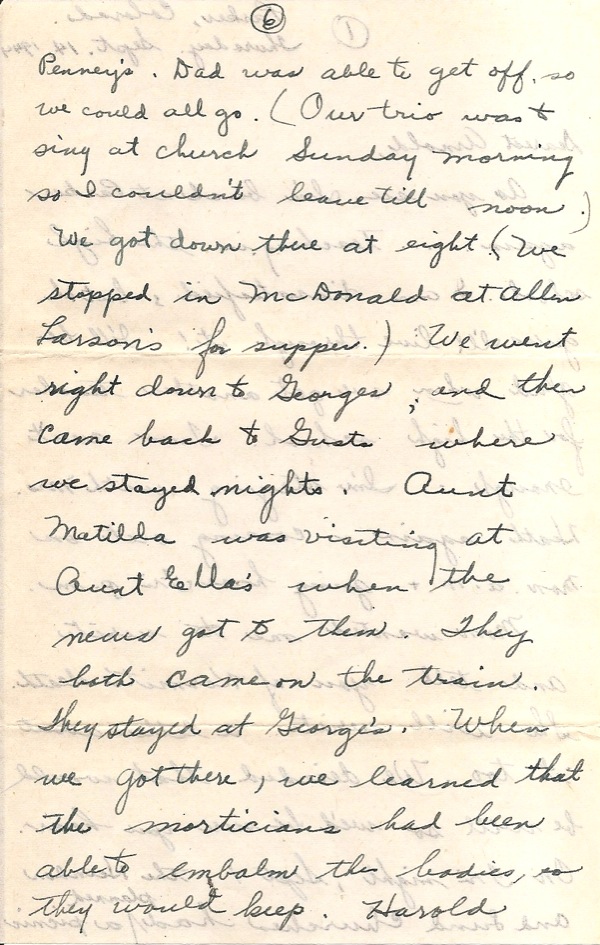 6
Penney's. Dad was able to get off, so
we could all go. (Our trio was to
sing at church Sunday morning
so I couldn't leave till noon.)
We got down there at eight. (We
stopped in McDonald at Allen
Larson's for supper.) We went
right down to Georges, and then
came back to Gusts where
we stayed nights. Aunt
Matilda was visiting at
Aunt Ella's when the
news got to them. They
both came on the train.
They stayed at George's. When
we got there, we learned that
the morticians had been
able to embalm the bodies, so
they would keep. Harold